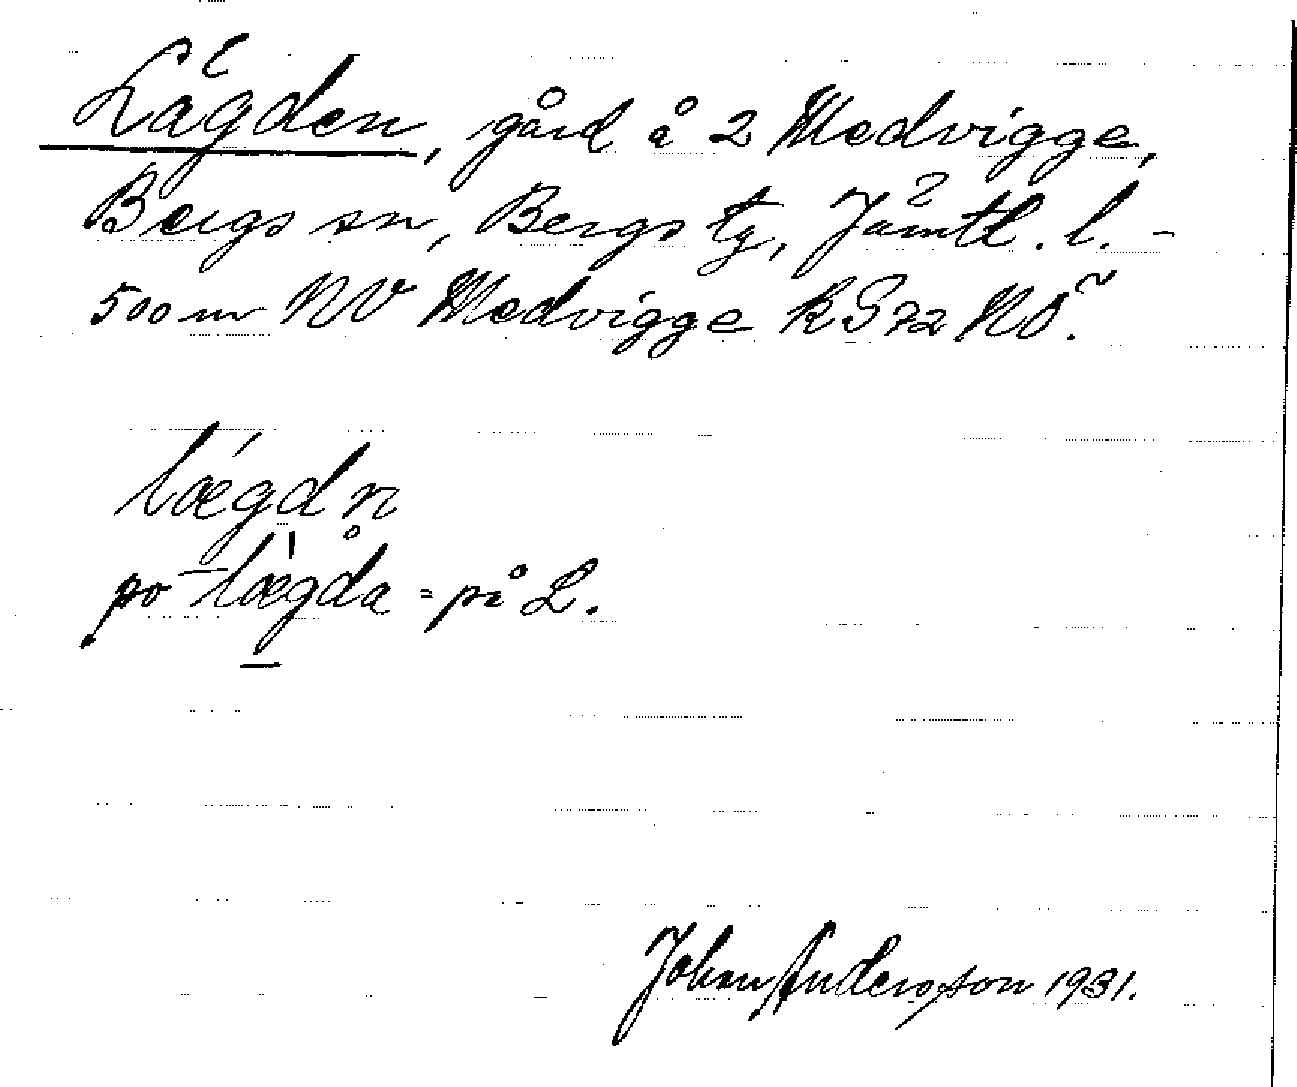 Lägden, gård å 2 Medvigge,
Bergs sn, Bergs tg, Jämtl. l. -
500 m NV Medvigge KG 72 NO.
lægdn̥
po lægda = på L.
Johan Andersson 1931.